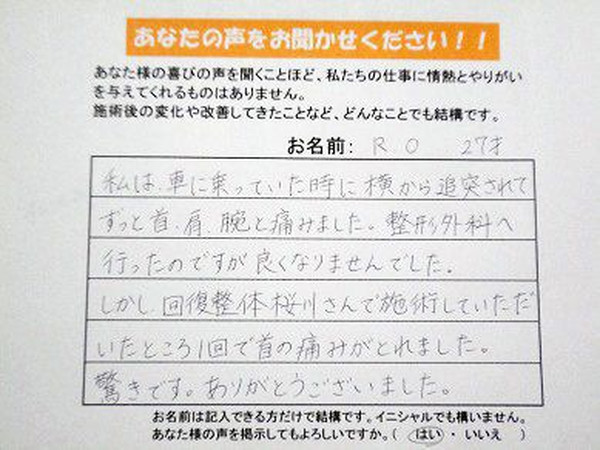 あなたの声をお聞かせください！！
あなた様の喜びの声を聞くことほど、私たちの仕事に情熱とやりがい
を与えてくれるものはありません。
施術後の変化や改善してきたことなど、どんなことでも結構です。
お名前: R O 27才
私は、車に乗っていた時に横から追突されて
ずっと首、肩、腕と痛みました。整形外科へ
行ったのですが良くなりませんでした。
しかし、回復整体桜川さんで施術していただ
いたところ1回で首の痛みがとれました。
驚きです。ありがとうございました。
お名前は記入できる方だけで結構です。イニシャルでも構いません。
あなた様の声を掲示してもよろしいですか。( はい ・ いいえ )